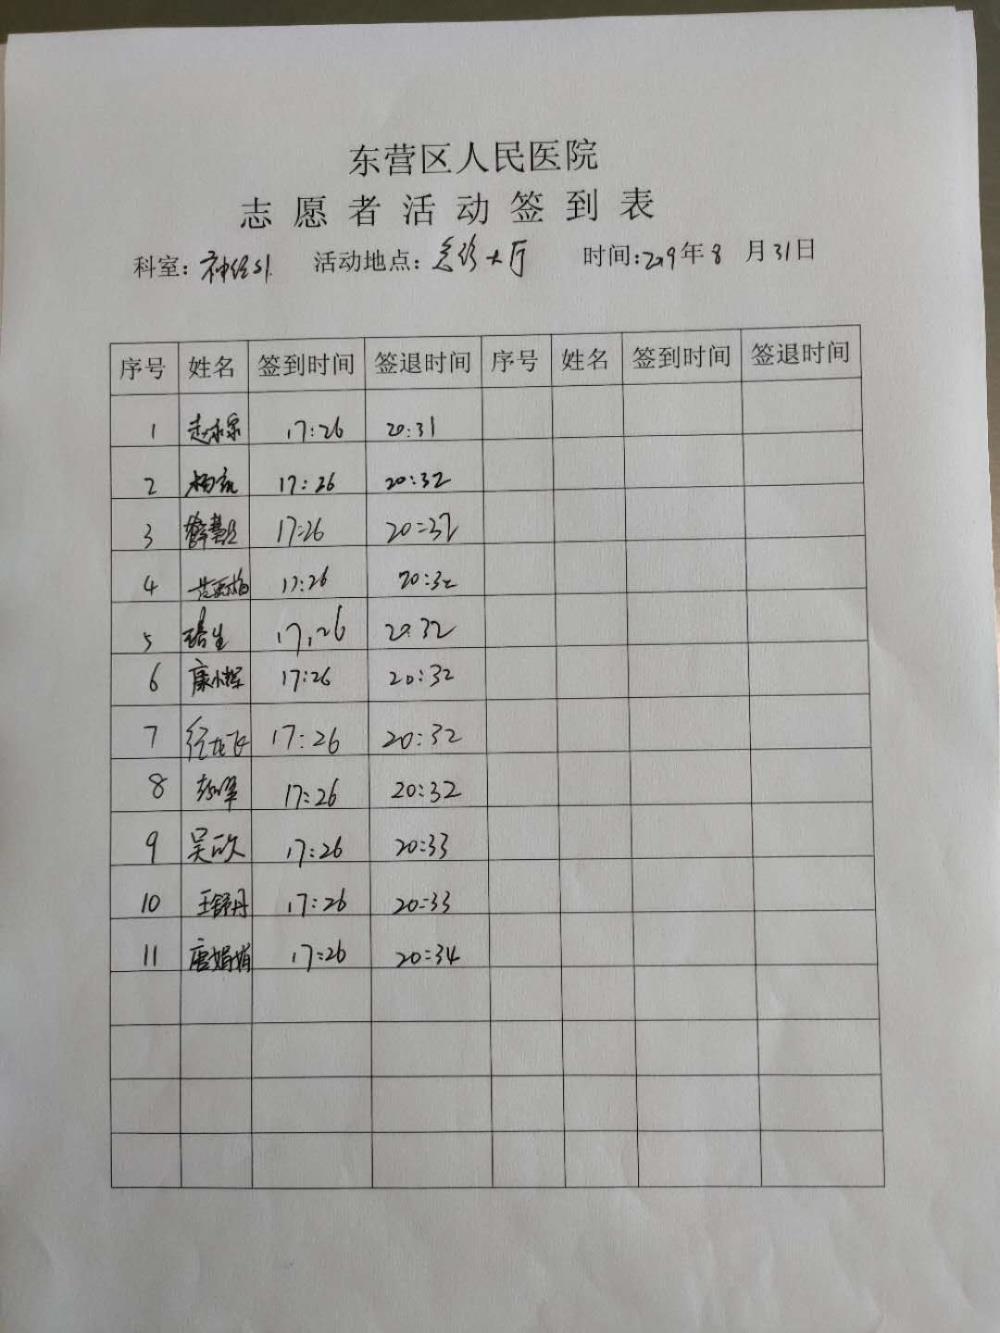 东营区人民医院
志愿者活动签到表
科室:神经外 活动地点:急诊大厅 时间:2019年8月31日
序号 姓名 签到时间 签退时间 序号 姓名 签到时间 签退时间
1 赵永泉 17:26 20:31
2 17:26 20:32
3 17:26 20:32
4 17:26 20:32
5 17:26 20:32
6 康小辉 17:26 20:32
7 17:26 20:32
8 17:26 20:32
9 吴欣 17:26 20:33
10 王舒丹 17:26 20:33
11 唐娟娟 17:26 20:34